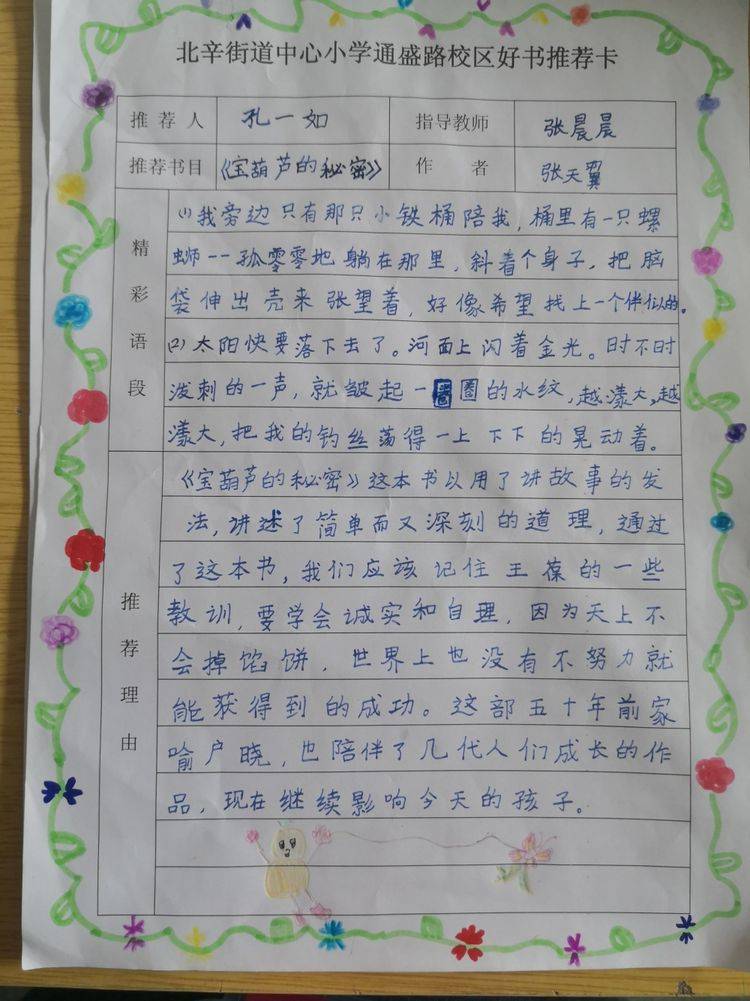 北辛街道中心小学通盛路校区好书推荐卡
推荐人 孔一如 指导教师 张晨晨
推荐书目 《宝葫芦的秘密》 作者 张天翼
精彩语段
(1)我旁边只有那只小铁桶陪我,桶里有一只螺
蛳——孤零零地躺在那里,斜着个身子,把脑
袋伸出壳来张望着,好像希望找上一个伴似的。
(2)太阳快要落下去了。河面上闪着金光。时不时
泼刺的一声,就皱起一圈圈的水纹,越漾大,越
漾大,把我的钓丝荡得一上一下的晃动着。
推荐理由
《宝葫芦的秘密》这本书以用了讲故事的发
法,讲述了简单而又深刻的道理,通过
了这本书,我们应该记住王葆的一些
教训,要学会诚实和自理,因为天上不
会掉馅饼,世界上也没有不努力就
能获得到的成功。这部五十年前家
喻户晓,也陪伴了几代人们成长的作
品,现在继续影响今天的孩子。